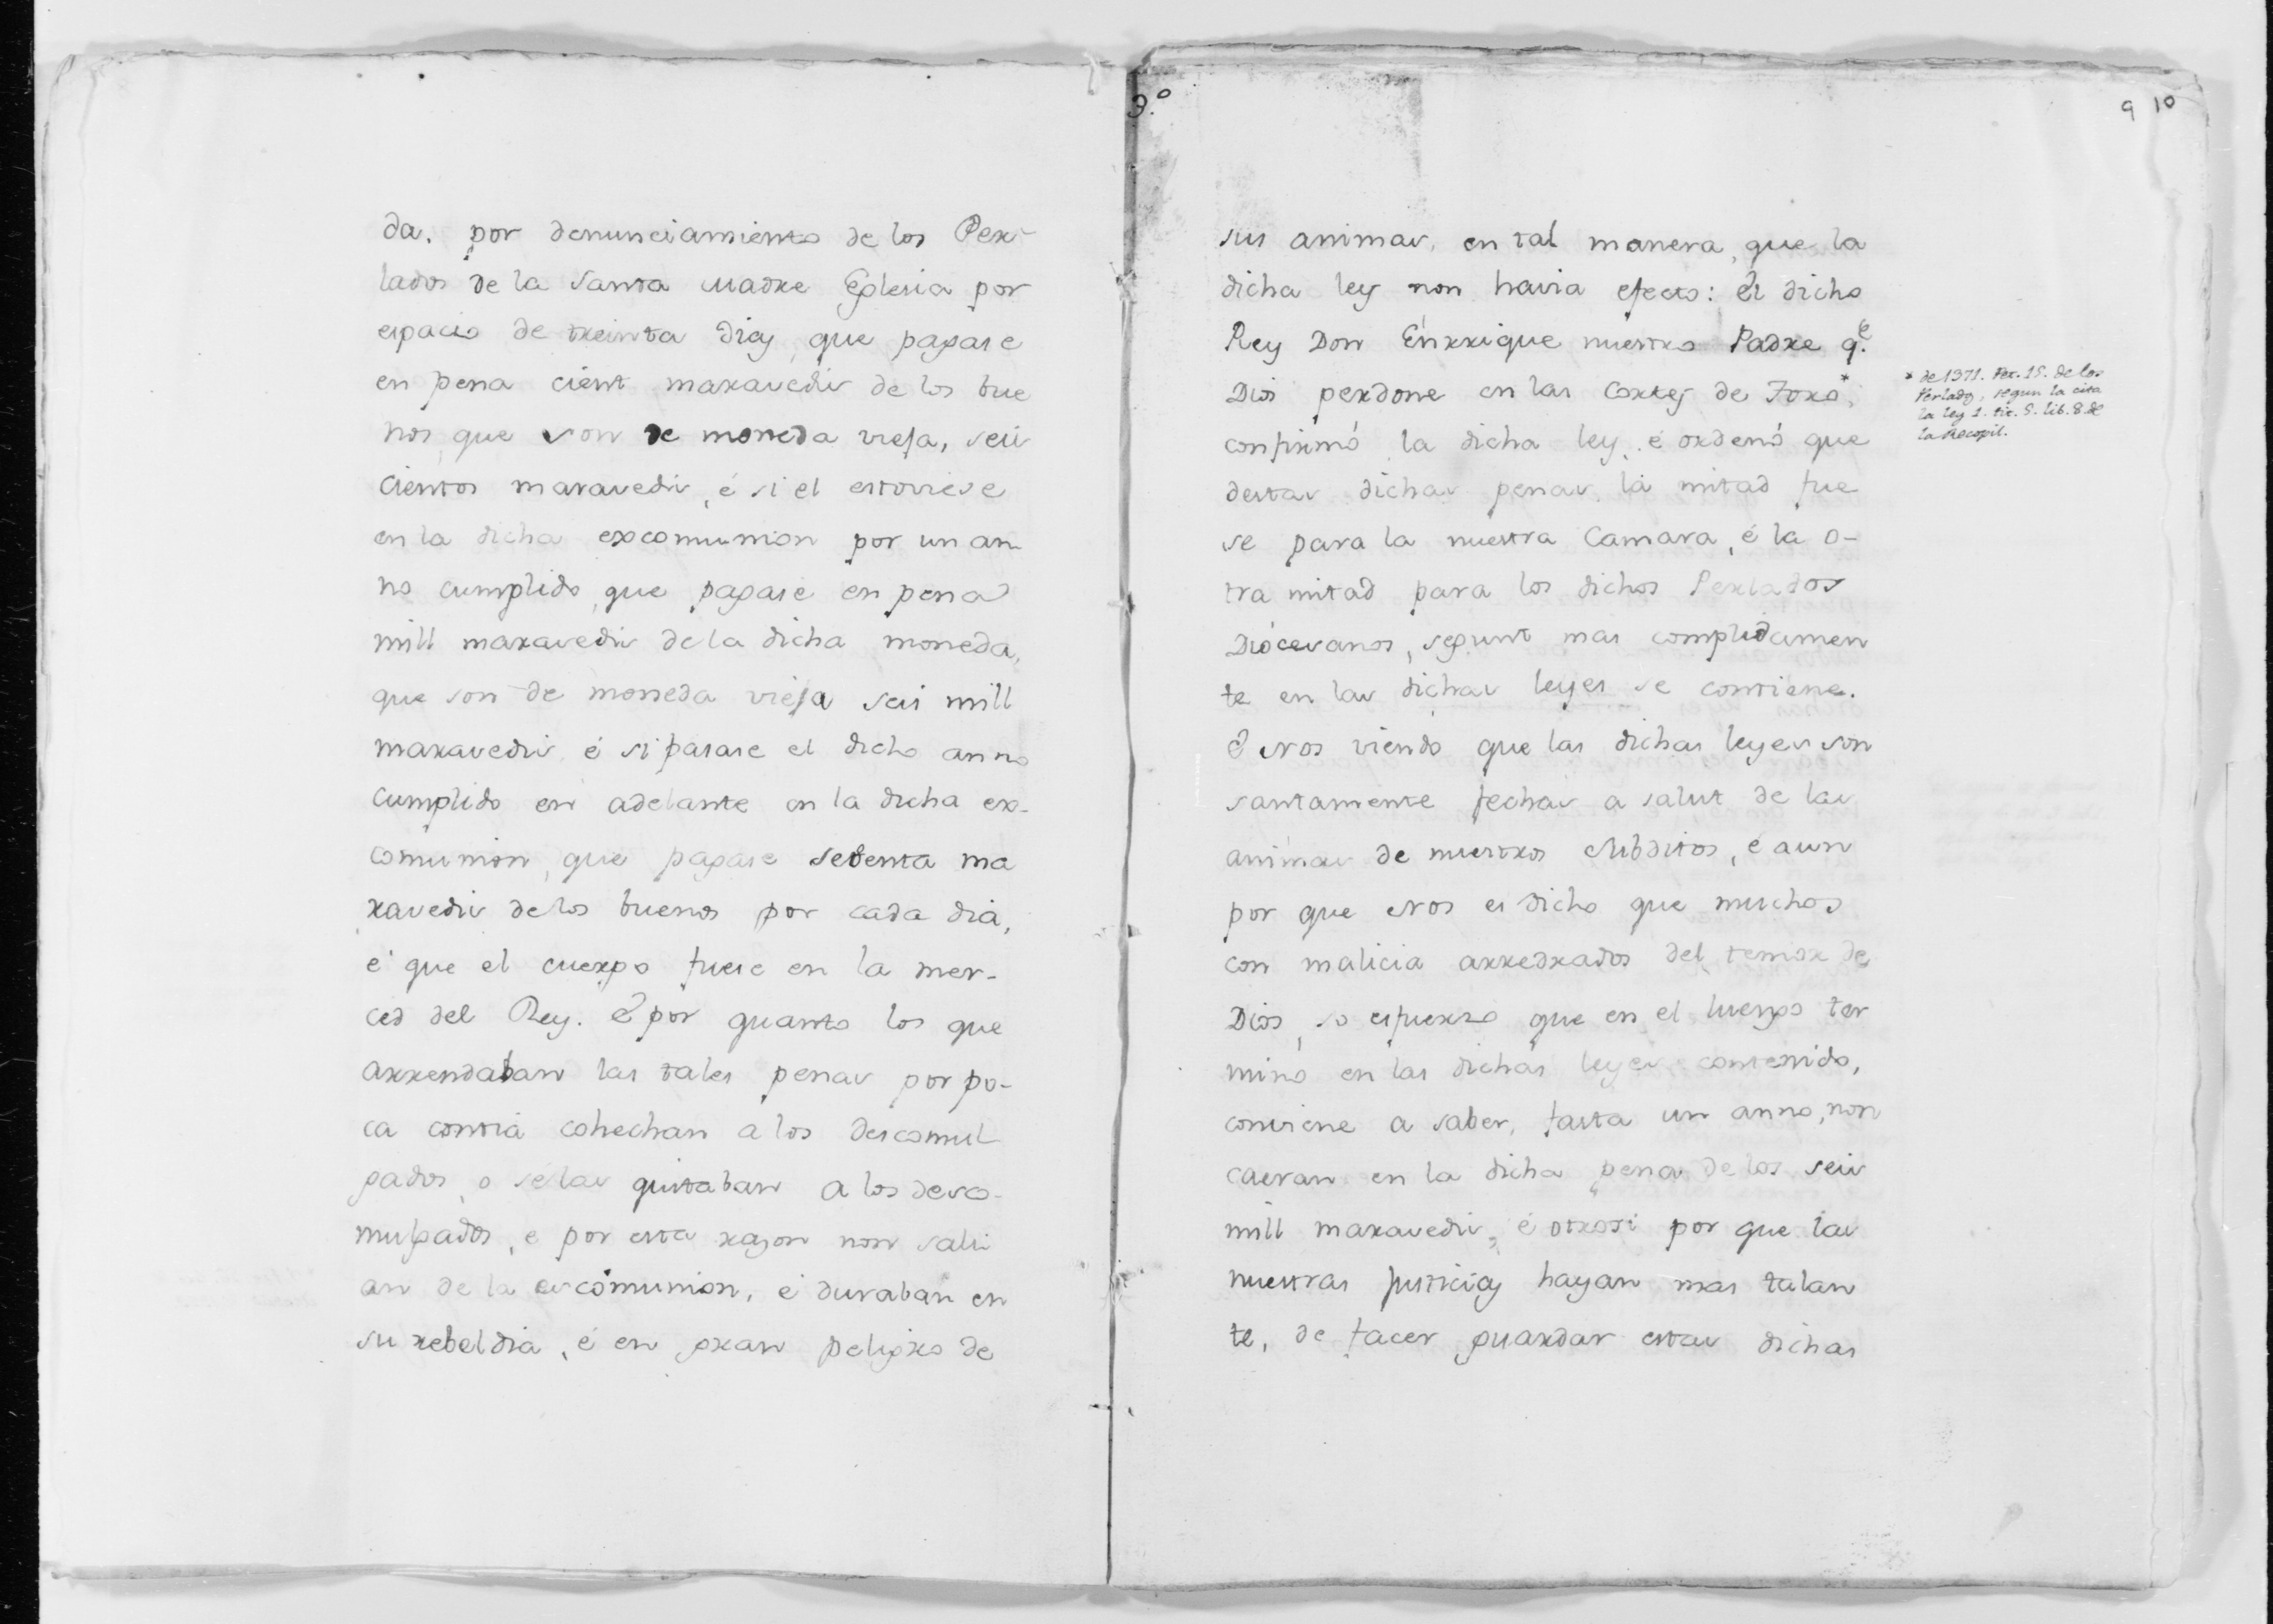 da. por denunciamiento de los Per-
lados de la Santa Madre Eglesia por
espacio de treinta dias, que pagase
en pena cient maravedis de los bue
nos, que son de moneda vieja, seis
cientos maravedis, é si el estoviese
en la dicha excomunion por un an-
no cumplido, que pagase en pena
mill maravedis de la dicha moneda,
que son de moneda vieja seis mill
maravedis, é si pasase el dicho anno
cumplido en adelante en la dicha ex-
comunion, que pagase setenta ma
ravedis de los buenos por cada dia,
é que el cuerpo fuese en la mer-
ced del Rey. E por quanto los que
arrendaban las tales penas por po-
ca contia cohechan a los descomul
gados, o se las quitaban a los desco-
mulgados, e por esta razon non sali
an de la escomunion, é duraban en
su rebeldia, é en gran peligro de
9.º
9 10
sus animas, en tal manera, que la
dicha ley non havia efecto: El dicho
Rey Don Enrrique nuestro Padre q.e
Dios perdone en las Cortes de Toro*,
confirmó la dicha ley, é ordenó que
destas dichas penas, la mitad fue
se para la nuestra Camara, é la o-
tra mitad para los dichos Perlados
Diocesanos, segunt mas complidamen
te en las dichas leyes se contiene.
E Nos viendo que las dichas leyes son
santamente fechas a salut de las
animas de nuestros Subditos, é aun
por que Nos es dicho que muchos
con malicia arredrados del temor de
Dios, so esfuerzo que en el luengo ter
mino en las dichas leyes contenido,
conviene a saber, fasta un anno, non
caeran en la dicha pena de los seis
mill maravedis, é otrosi por que las
nuestras justicias hayan mas talan
te, de facer guardar estas dichas
* de 1371. Pet. 15. de los
Perlados, segun la cita
la ley 1. tit. 5. lib. 8. de
la Recopil.